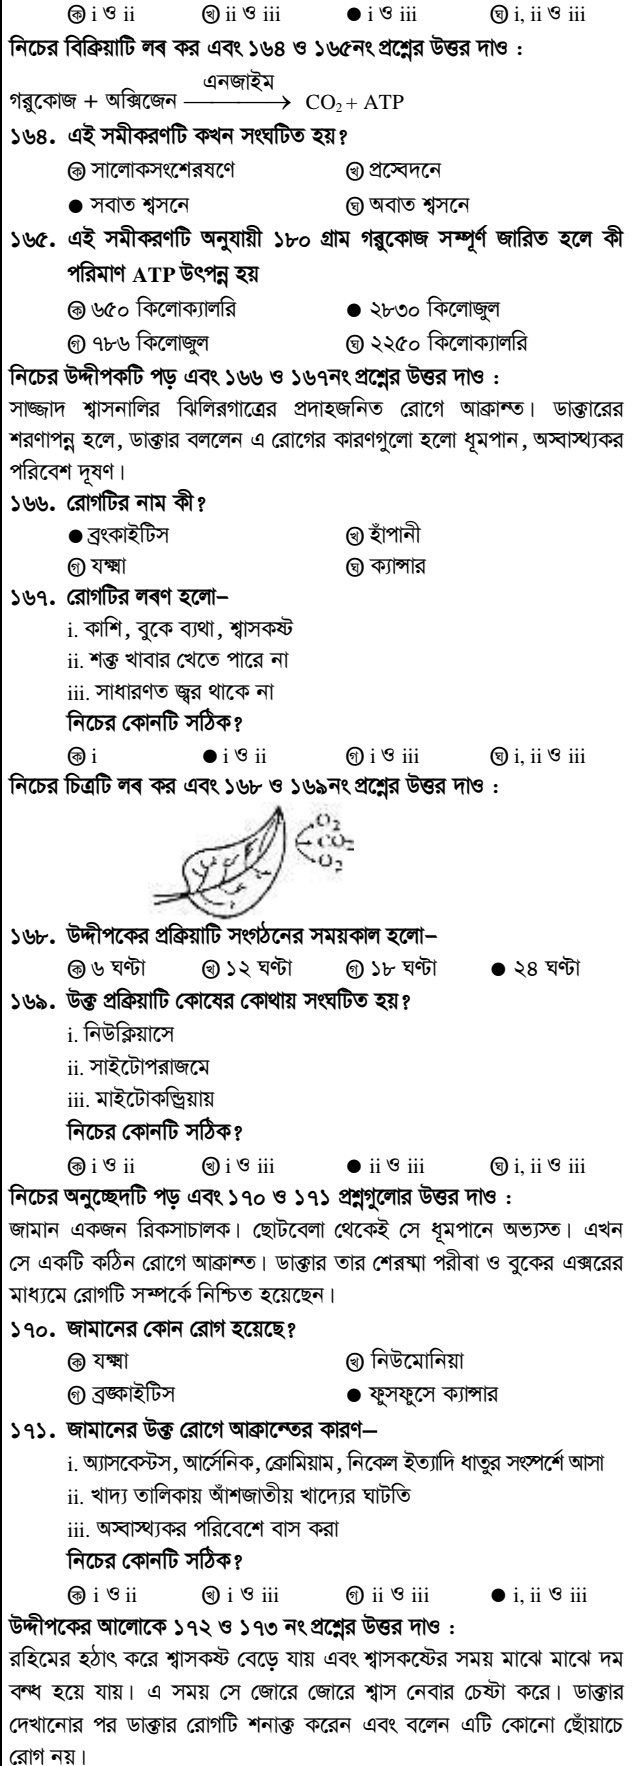 ⓚ i ও ii ⓛ ii ও iii ● i ও iii ঘ i, ii ও iii
নিচের বিক্রিয়াটি লৰ কর এবং ১৬৪ ও ১৬৫নং প্রশ্নের উত্তর দাও :
এনজাইম
গরুকোজ + অক্সিজেন ⟶ CO₂ + ATP
১৬৪. এই সমীকরণটি কখন সংঘটিত হয়?
ক সালোকসংশেরষণে খ প্রস্বেদনে
● সবাত শ্বসনে ঘ অবাত শ্বসনে
১৬৫. এই সমীকরণটি অনুযায়ী ১৮০ গ্রাম গরুকোজ সম্পূর্ণ জারিত হলে কী
পরিমাণ ATP উৎপন্ন হয়
ক ৬৫০ কিলোক্যালরি ● ২৮৩০ কিলোজুল
গ ৭৮৬ কিলোজুল ঘ ২২৫০ কিলোক্যালরি
নিচের উদ্দীপকটি পড় এবং ১৬৬ ও ১৬৭নং প্রশ্নের উত্তর দাও :
সাজ্জাদ শ্বাসনালির ঝিলিরগাত্রের প্রদাহজনিত রোগে আক্রান্ত। ডাক্তারের
শরণাপন্ন হলে, ডাক্তার বললেন এ রোগের কারণগুলো হলো ধূমপান, অস্বাস্থ্যকর
পরিবেশ দূষণ।
১৬৬. রোগটির নাম কী?
● ব্রংকাইটিস খ হাঁপানী
গ যক্ষ্মা ঘ ক্যান্সার
১৬৭. রোগটির লৰণ হলো–
i. কাশি, বুকে ব্যথা, শ্বাসকষ্ট
ii. শক্ত খাবার খেতে পারে না
iii. সাধারণত জ্বর থাকে না
নিচের কোনটি সঠিক?
ক i ● i ও ii গ i ও iii ঘ i, ii ও iii
নিচের চিত্রটি লৰ কর এবং ১৬৮ ও ১৬৯নং প্রশ্নের উত্তর দাও :
O₂
CO₂
O₂
১৬৮. উদ্দীপকের প্রক্রিয়াটি সংগঠনের সময়কাল হলো–
ক ৬ ঘণ্টা খ ১২ ঘণ্টা গ ১৮ ঘণ্টা ● ২৪ ঘণ্টা
১৬৯. উক্ত প্রক্রিয়াটি কোষের কোথায় সংঘটিত হয়?
i. নিউক্লিয়াসে
ii. সাইটোপরাজমে
iii. মাইটোকন্ড্রিয়ায়
নিচের কোনটি সঠিক?
ক i ও ii খ i ও iii ● ii ও iii ঘ i, ii ও iii
নিচের অনুচ্ছেদটি পড় এবং ১৭০ ও ১৭১ প্রশ্নগুলোর উত্তর দাও :
জামান একজন রিকসাচালক। ছোটবেলা থেকেই সে ধূমপানে অভ্যস্ত। এখন
সে একটি কঠিন রোগে আক্রান্ত। ডাক্তার তার শেরষ্মা পরীৰা ও বুকের এক্সরের
মাধ্যমে রোগটি সম্পর্কে নিশ্চিত হয়েছেন।
১৭০. জামানের কোন রোগ হয়েছে?
ক যক্ষ্মা খ নিউমোনিয়া
গ ব্রঙ্কাইটিস ● ফুসফুসে ক্যান্সার
১৭১. জামানের উক্ত রোগে আক্রান্তের কারণ–
i. অ্যাসবেস্টস, আর্সেনিক, ক্রোমিয়াম, নিকেল ইত্যাদি ধাতুর সংস্পর্শে আসা
ii. খাদ্য তালিকায় আঁশজাতীয় খাদ্যের ঘাটতি
iii. অস্বাস্থ্যকর পরিবেশে বাস করা
নিচের কোনটি সঠিক?
ক i ও ii খ i ও iii গ ii ও iii ● i, ii ও iii
উদ্দীপকের আলোকে ১৭২ ও ১৭৩ নং প্রশ্নের উত্তর দাও :
রহিমের হঠাৎ করে শ্বাসকষ্ট বেড়ে যায় এবং শ্বাসকষ্টের সময় মাঝে মাঝে দম
বন্ধ হয়ে যায়। এ সময় সে জোরে জোরে শ্বাস নেবার চেষ্টা করে। ডাক্তার
দেখানোর পর ডাক্তার রোগটি শনাক্ত করেন এবং বলেন এটি কোনো ছোঁয়াচে
রোগ নয়।